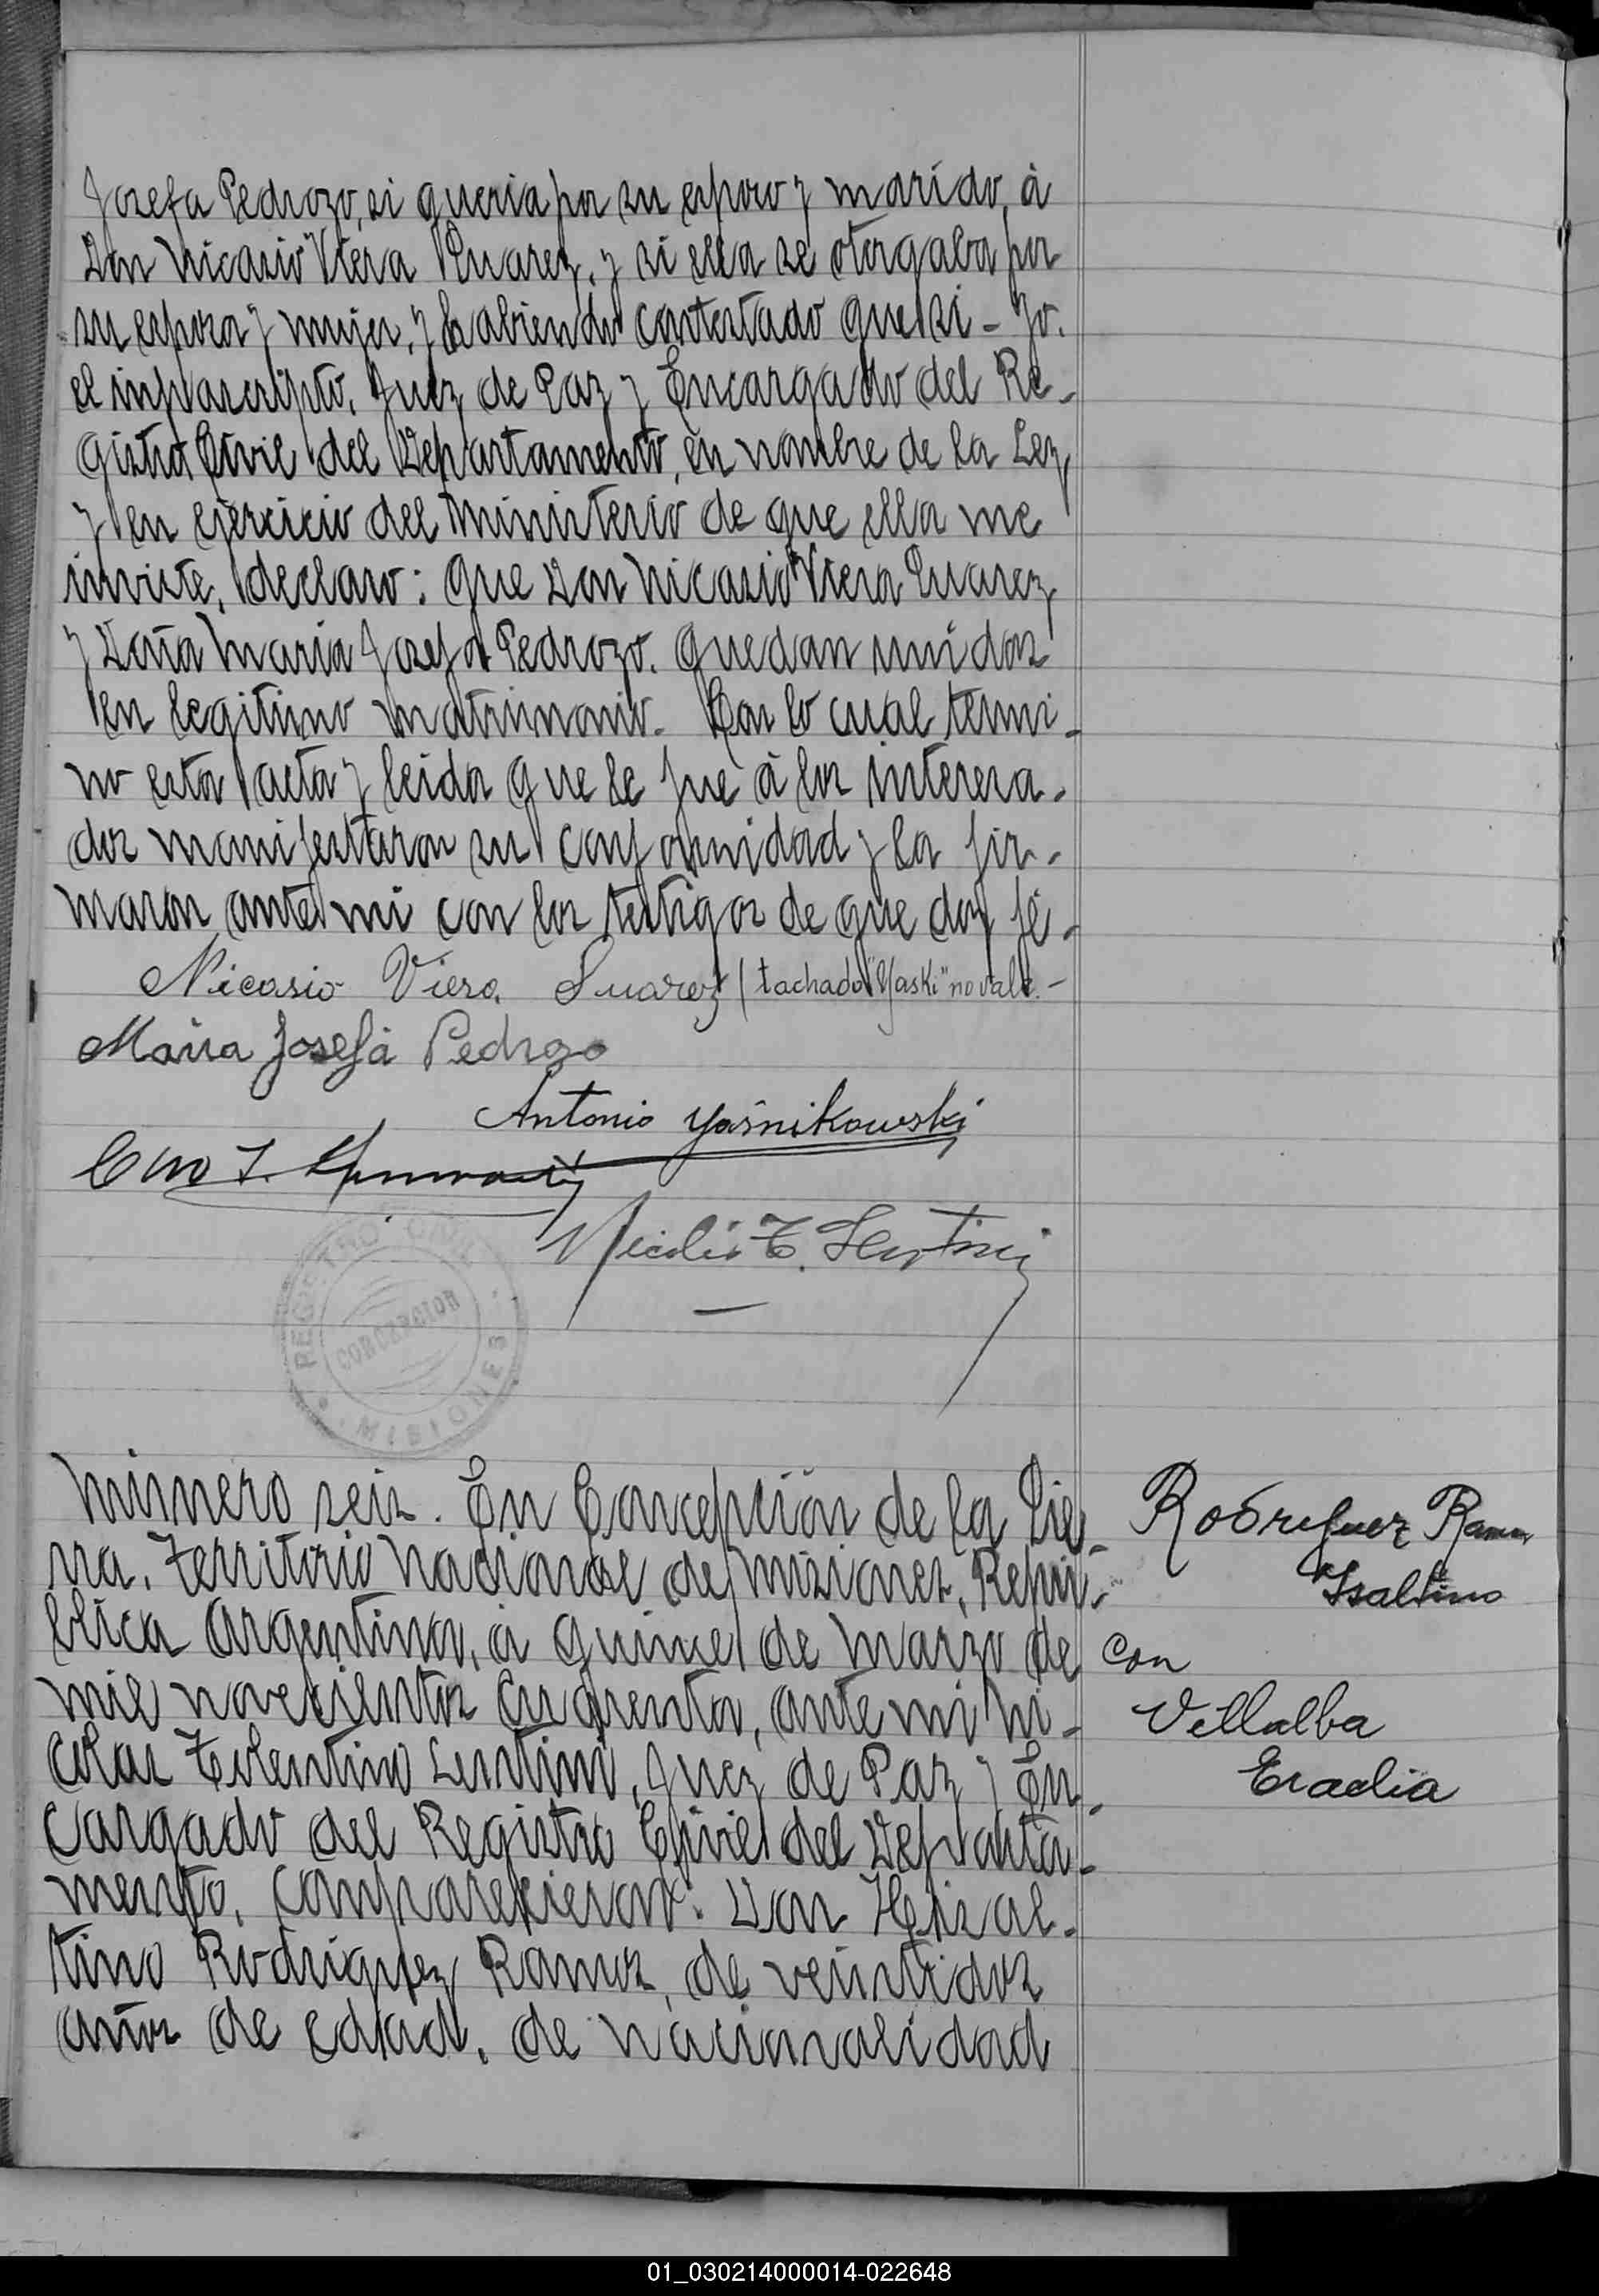 Josefa Pedrozo, si queria por su esposo y marido, à
Don Nicasio Viera Suarez, y si ella se otorgaba por
su esposa y mujer, y habiendo contestado que si - Yo.
el infrascripto, Juez de Paz y Encargado del Re-
gistro Civil del Departamento, en nombre de la Ley
y en ejercicio del ministerio de que ella me
inviste, declaro: Que Don Nicasio Viera Suarez
y Doña Maria Josefa Pedrozo. quedan unidos
en legitimo matrimonio. Con lo cual termi-
no esta acta y leida que le fue à los interesa-
dos manifestaron su conformidad y la fir-
maron ante mi con los testigos de que doy fé.
Nicasio Viera Suarez (tachado "Yaski" no vale.-
Maria Josefa Pedrozo
Antonio Yasnikowski
REGISTRO CIVIL
CONCEPCION
MISIONES
Número seis. En Concepción de la Sie-
rra, Territorio Nacional de Misiones, Repú-
blica Argentina, à quince de Marzo de
mil novecientos cuarenta, ante mi Ni-
colas Tolentino Sentini, Juez de Paz y En-
cargado del Registro Civil del Departa-
mento, comparecieron: Don Hisal-
tino Rodriguez Ramos, de veintidos
años de edad, de nacionalidad
Rodriguez Ramos
Isaltino
con
Villalba
Eradia
01_030214000014-022648